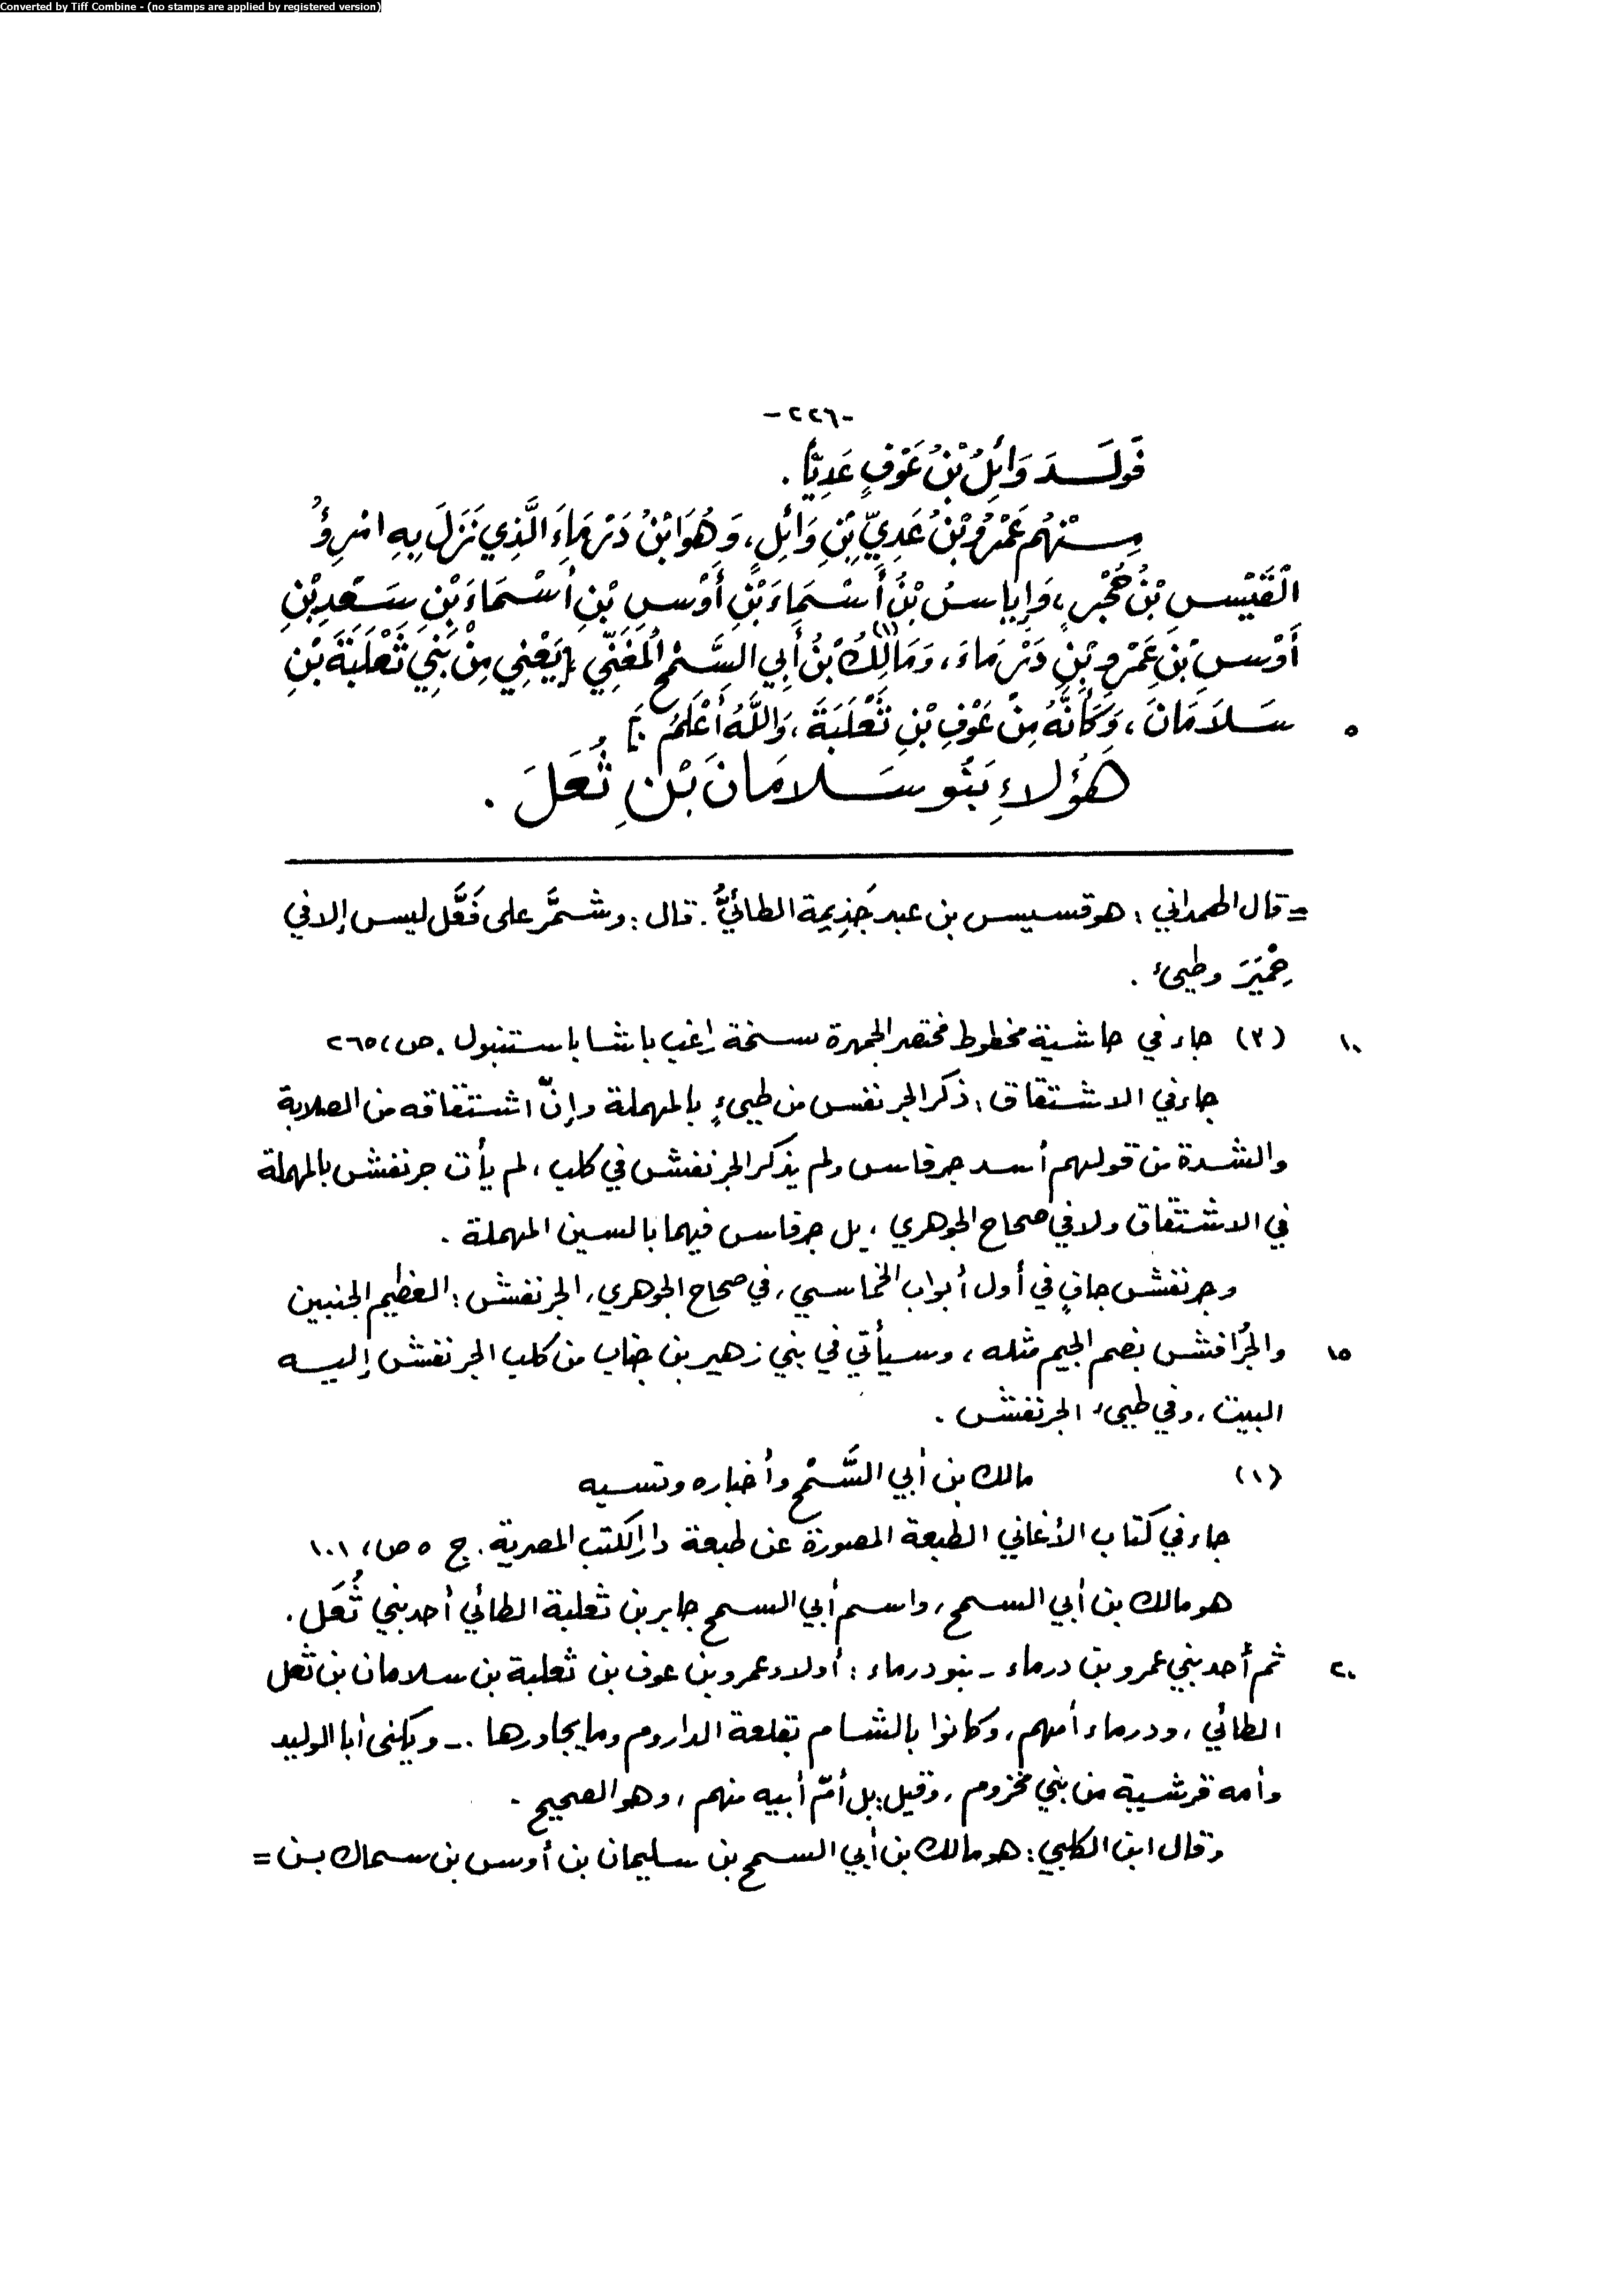 Converted by Tiff Combine - (no stamps are applied by registered version)
-٢٢٦-
فَولَـدَ وَائِلُ بْنُ عَوْفٍ عَدِيّاً .
مِـنْهُم عَمْرُو بْنُ عَدِيِّ بْنِ وَائِلٍ، وَهُوَ ابْنُ دَرْمَاءَ الَّذِي نَزَلَ بِهِ امْرِؤُ
الْقَيْسِ بْنُ حُجْرٍ، وَإِيَاسُ بْنُ أَسْمَاءَ بْنِ أَوْسِ بْنِ أَسْمَاءَ بْنِ سَعْدِ بْنِ
أَوْسِ بْنِ عَمْرِو بْنِ دَرْمَاءَ، وَمَالِكُ(١) بْنُ أَبِي السَّمْحِ الْمُغَنِّي [يَعْنِي مِنْ بَنِي ثَعْلَبَةَ بْنِ
سَلَامَانَ، وَكَأَنَّهُ مِنْ عَوْفِ بْنِ ثَعْلَبَةَ، وَاللَّهُ أَعْلَمُ .] ٥
هَؤُلاءِ بَنُو سَلامَانَ بْنِ ثُعَلَ .
= قال الهمداني : هو قسيس بن عبد جَذِيمة الطائيُّ . قال : وشمَّر على فَعَّل ليس إلا في
حِمْيَرَ وطيىء .
(٣) جاء في حاشية مخطوط مختصر الجمهرة نسخة راغب باشا باستنبول . ص، ٢٦٥ ١٠
جاء في الاشتقاق : ذكر الجرنفس من طيىءٍ بالمهملة وإنّ اشتقاقه من الصلابة
والشدة من قولهم أسد جرفاس ولم يذكر الجرنفش في كلب ، لم يأت جرنفش بالمهملة
في الاشتقاق ولا في صحاح الجوهري ، بل جرفاس فيهما بالسين المهملة .
وجرنفش جافٍ في أول أبواب الخماسي ، في صحاح الجوهري ، الجرنفش : العظيم الجنبين
والجُرافش بضم الجيم مثله ، وسيأتي في بني زهير بن جناب من كلب الجرنفش إليه ١٥
البيت ، وفي طيىء الجرنفش .
(١) مالك بن أبي السَّمْح وأخباره ونسبه
جاء في كتاب الأغاني الطبعة المصورة عن طبعة دار الكتب المصرية . ج ٥ ص، ١٠١
هو مالك بن أبي السمح ، واسم أبي السمح جابر بن ثعلبة الطائي أحد بني ثُعَل .
ثم أحد بني عمرو بن درماء - بنو درماء : أولاد عمرو بن عوف بن ثعلبة بن سلامان بن ثعل ٢٠
الطائي ، ودرماء أمهم ، وكانوا بالشام بقلعة الداروم وما يجاورها . - ويكنى أبا الوليد
وأمه قرشية من بني مخزوم ، وقيل : بل أمّ أبيه منهم ، وهو الصحيح .
وقال ابن الكلبي : هو مالك بن أبي السمح بن سليمان بن أوس بن سماك بـن =